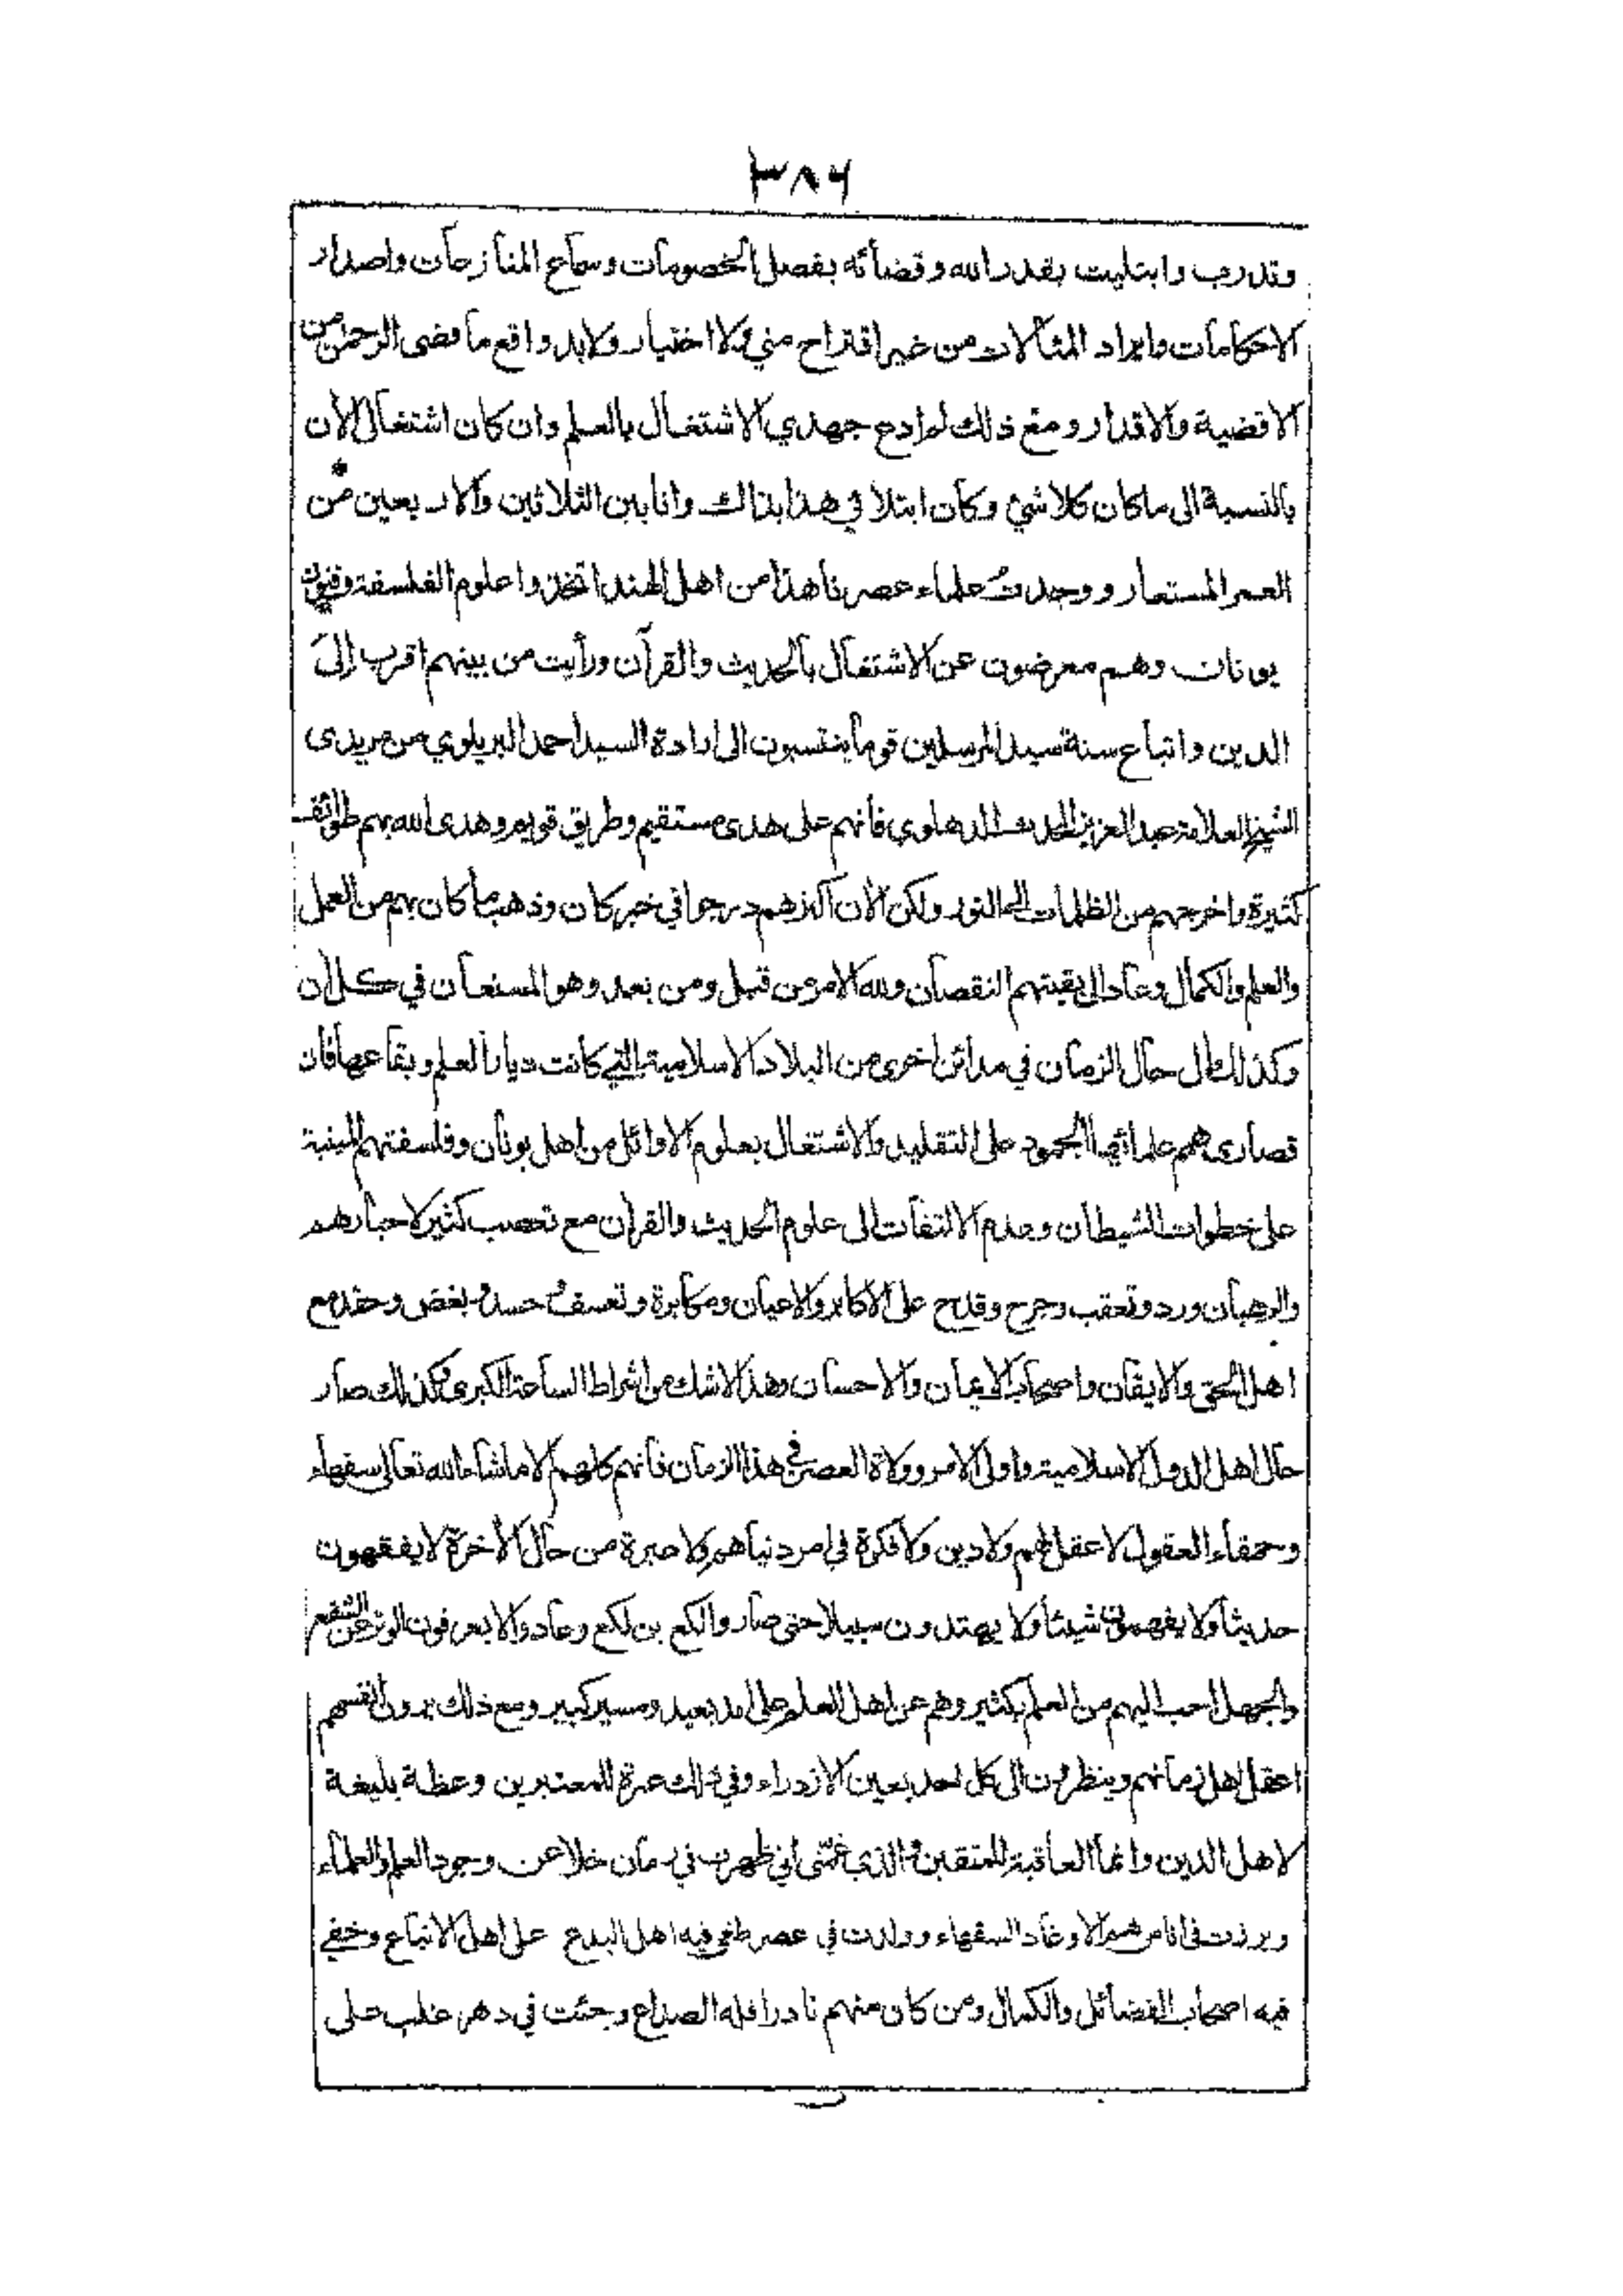 ٣٨٦
وتدرب وابتليت بقدر الله وقضائه بفصل الخصومات وسماع المنازعات واصدار
الاحكامات وايراد المثالات من غير اقتراح مني ولا اختيار ولا بد واقع ما قضى الرحمن من
الاقضية والاقدار ومع ذلك لم ادع جهدي الاشتغال بالعلم وان كان اشتغالي الآن
بالنسبة الى ما كان كلا شيء وكان ابتلاء في هذا بذاك وانا بين الثلاثين والاربعين من
العمر المستعار ووجدت علماء عصرنا هذا من اهل الهند اتخذوا علوم الفلسفة وفنون
يونان وهم معرضون عن الاشتغال بالحديث والقرآن ورأيت من بينهم اقرب إلى
الدين واتباع سنة سيد المرسلين قوما ينتسبون الى ارادة السيد احمد البريلوي من مريدى
الشيخ العلامة عبد العزيز المحدث الدهلوي فانهم على هدى مستقيم وطريق قويم وهدى الله بهم طوائف
كثيرة واخرجهم من الظلمات الى النور ولكن الأن اكثرهم درجوا في خبر كان وذهب ما كان بهم من العمل
والعلم والكمال وعاد الى بقيتهم النقصان ولله الامر من قبل ومن بعد وهو المستعان في كل أن
وكذلك ال حال الزمان في مدائن اخرى من البلاد الاسلامية التي كانت ديارا لعلم وبقاعها فان
قصارى همم علمائها الجمود على التقليد والاشتغال بعلوم الاوائل من اهل يونان وفلسفتهم المبنية
على خطوات الشيطان وعدم الالتفات الى علوم الحديث والقرأن مع تعصب كثير لاحبارهم
والرهبان ورد وتعقب وجرح وقدح على الاكابر والاعيان ومكابرة وتعسف وحسد وبغض وحقد مع
اهل الحق والايقان واصحاب الايمان والاحسان وهذا لا شك من اشراط الساعة الكبرى وكذلك صار
حال اهل الدول الاسلامية واولى الامر وولاة العصر في هذا الزمان فانهم كلهم الا ما شاء الله تعالى سفهاء
وسخفاء العقول لا عقل لهم ولا دين ولا فكرة في امر دنياهم ولا خبرة من حال الأخرة لا يفقهون
حديثا ولا يفهمون شيئا ولا يهتدون سبيلا حتى صاروا لكع بن لكع وعادوا لا يعرفون الوتر من الشفع
والجهل احب اليهم من العلم بكثير وهم عن اهل العلم على امد بعيد ومسير كبير ومع ذلك يرون انفسهم
اعقل اهل زمانهم وينظرون الى كل احد بعين الازدراء وفي ذلك عبرة للمعتبرين وعظة بليغة
لاهل الدين وانما العاقبة للمتقين والذي غمنى أني ظهرت في زمان خلا عن وجود العلم والعلماء
وبرزت في اناس هم الاوغاد السفهاء وولدت في عصر طغى فيه اهل البدع على اهل الاتباع وخفي
فيه اصحاب الفضائل والكمال ومن كان منهم نادرا فله الصداع وجئت في دهر غلب على